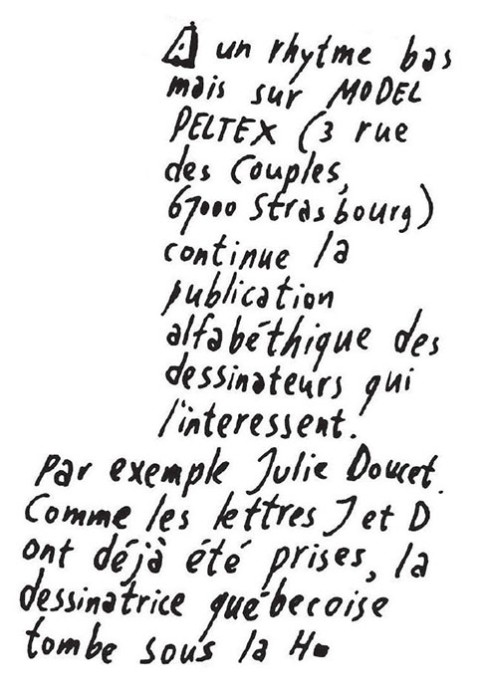 A un rhytme bas
mais sur MODEL
PELTEX (3 rue
des Couples,
67000 Strasbourg)
continue la
publication
alfabéthique des
dessinateurs qui
l'interessent.
Par exemple Julie Doucet.
Comme les lettres J et D
ont déjà été prises, la
dessinatrice québecoise
tombe sous la H.